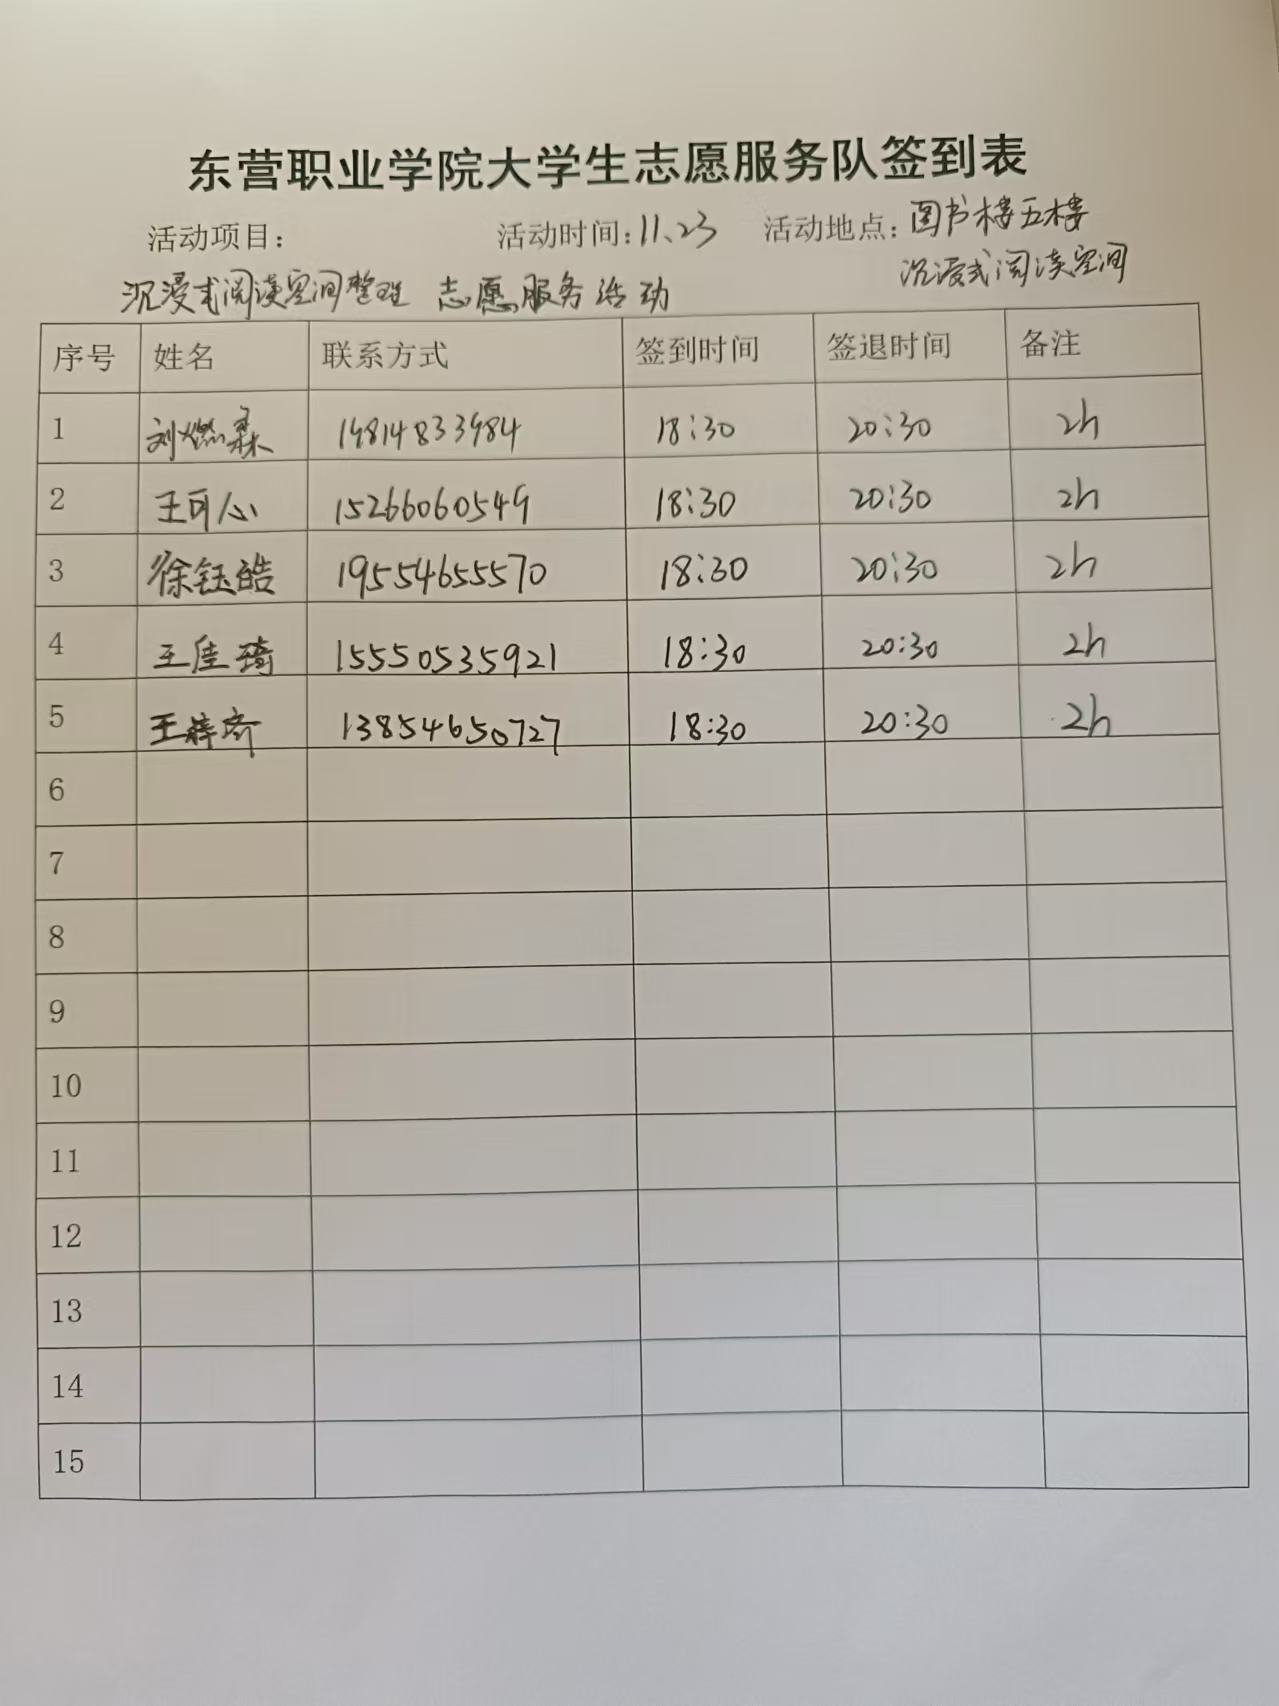 东营职业学院大学生志愿服务队签到表
活动项目： 活动时间：11.23 活动地点：图书楼五楼
沉浸式阅读空间整理 志愿服务活动 沉浸式阅读空间
序号 姓名 联系方式 签到时间 签退时间 备注
1 刘燃森 19814833984 18:30 20:30 2h
2 王可心 15266060549 18:30 20:30 2h
3 徐钰皓 19554655570 18:30 20:30 2h
4 王佳琦 15550535921 18:30 20:30 2h
5 王梓齐 13854650727 18:30 20:30 2h
6
7
8
9
10
11
12
13
14
15